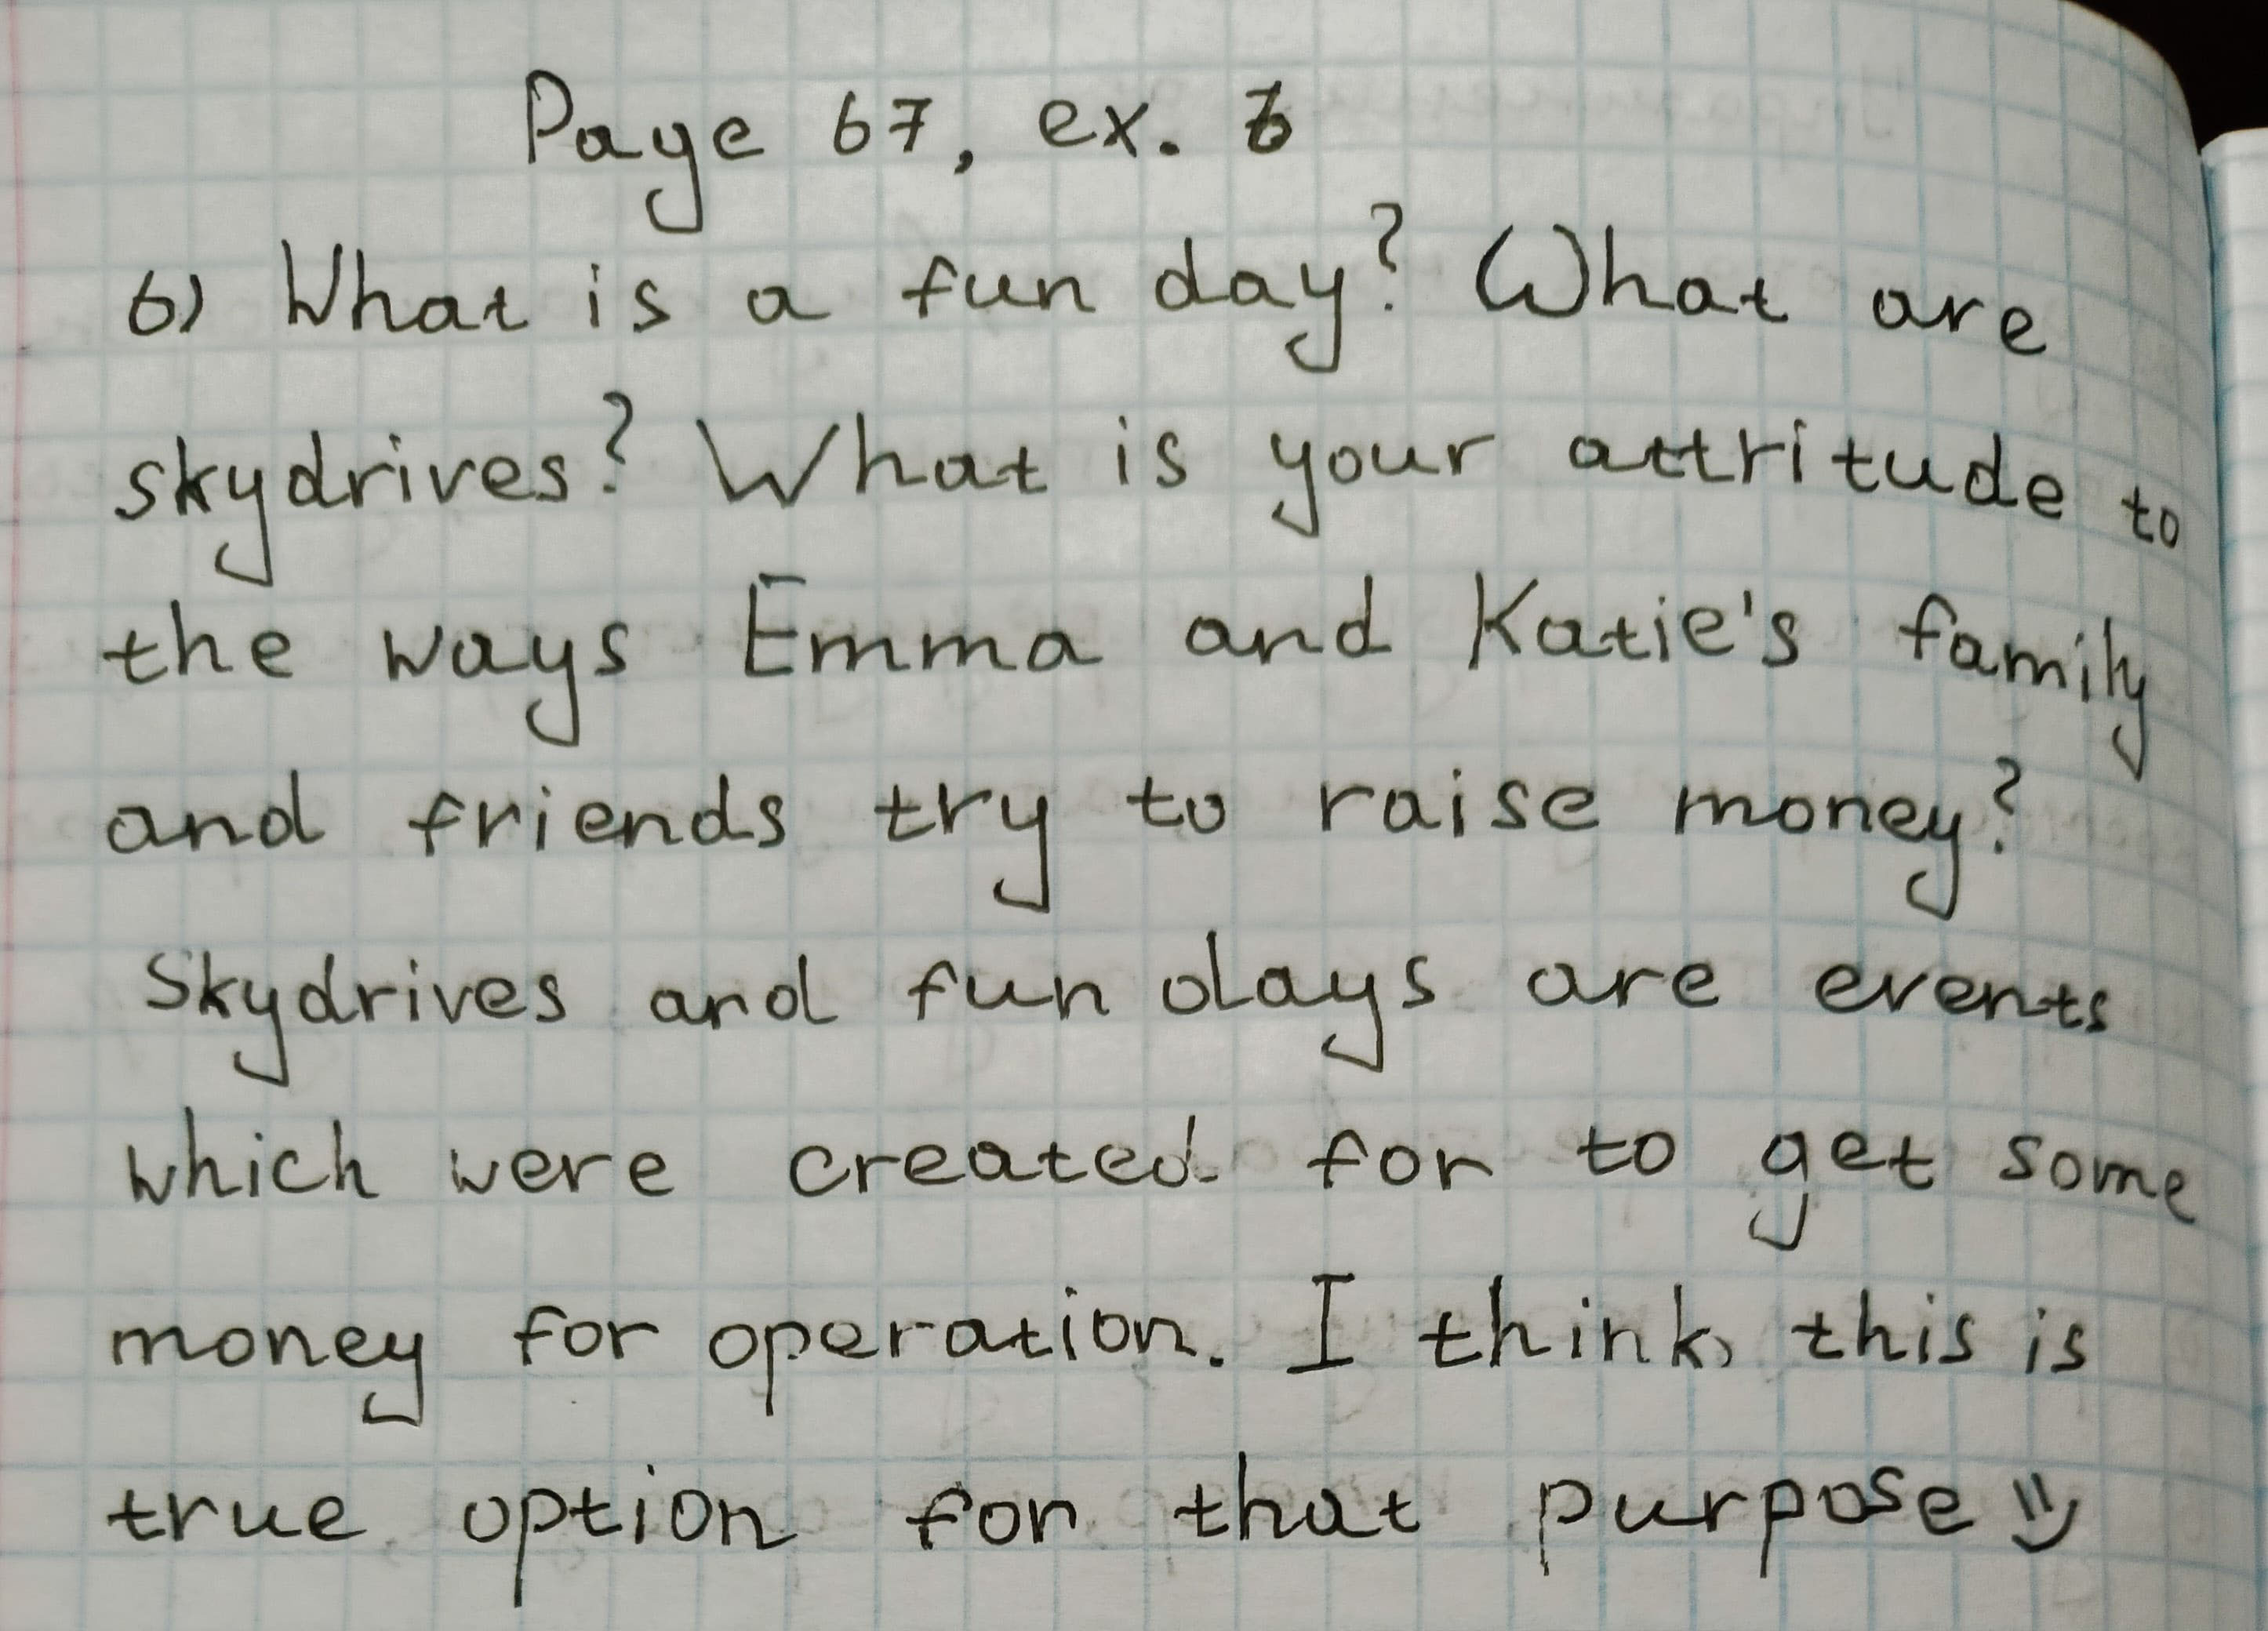 Page 67, ex. 6
6) What is a fun day? What are
skydrives? What is your attritude to
the ways Emma and Katie's family
and friends try to raise money?
Skydrives and fun days are events
which were created for to get some
money for operation. I think, this is
true option for that purpose =)